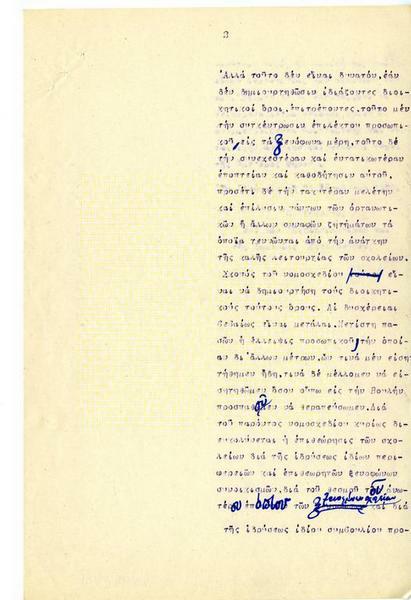 2
Ἀλλά τοῦτο δέν εἶναι δυνατόν, ἐάν
δέν δημιουργηθῶσιν ἰδιάζοντες διοι-
κητικοί ὅροι, ἐπιτρέποντες, τοῦτο μέν
τήν συγκέντρωσιν ἐπιλέκτου προσωπι-
κοῦ, εἰς τά ξενόφωνα μέρη, τοῦτο δέ
τήν συνεχεστέραν καί ἐντατικωτέραν
ἐποπτείαν καί καθοδήγησιν αὐτοῦ,
προσέτι δέ τήν ταχυτέραν μελέτην
καί ἐπίλυσιν πάντων τῶν ὀργανωτι-
κῶν ἤ ἄλλων συναφῶν ζητημάτων τά
ὁποῖα γεννῶνται ἀπό τήν ἀνάγκην
τῆς καλῆς λειτουργίας τῶν σχολείων.
Σκοπός τοῦ νομοσχεδίου τούτου εἶ-
ναι νά δημιουργήσῃ τούς διοικητι-
κούς τούτους ὅρους. Αἱ δυσχέρειαι
βεβαίως εἶναι μεγάλαι. Μεγίστη πα-
σῶν ἡ ἔλλειψις προσωπικοῦ, τήν ὁποί-
αν δι' ἄλλων μέτρων, ὧν τινά μέν εἰση-
γήθημεν ἤδη, τινά δέ μέλλομεν νά εἰ-
σηγηθῶμεν ὅσον οὔπω εἰς τήν Βουλήν,
προσπαθοῦμεν νά θεραπεύσωμεν. Διά
τοῦ παρόντος νομοσχεδίου κυρίως διευ-
κολύνεται ἡ ἐπιθεώρησις τῶν σχο-
λείων διά τῆς ἱδρύσεως ἰδίων περι-
φερειῶν καί ἐπιθεωρητῶν ξενοφώνων
συνοικισμῶν, διά τοῦ θεσμοῦ τοῦ ἀνω-
τέρου τῶν καί διά
τῆς ἱδρύσεως ἰδίου συμβουλίου προ-